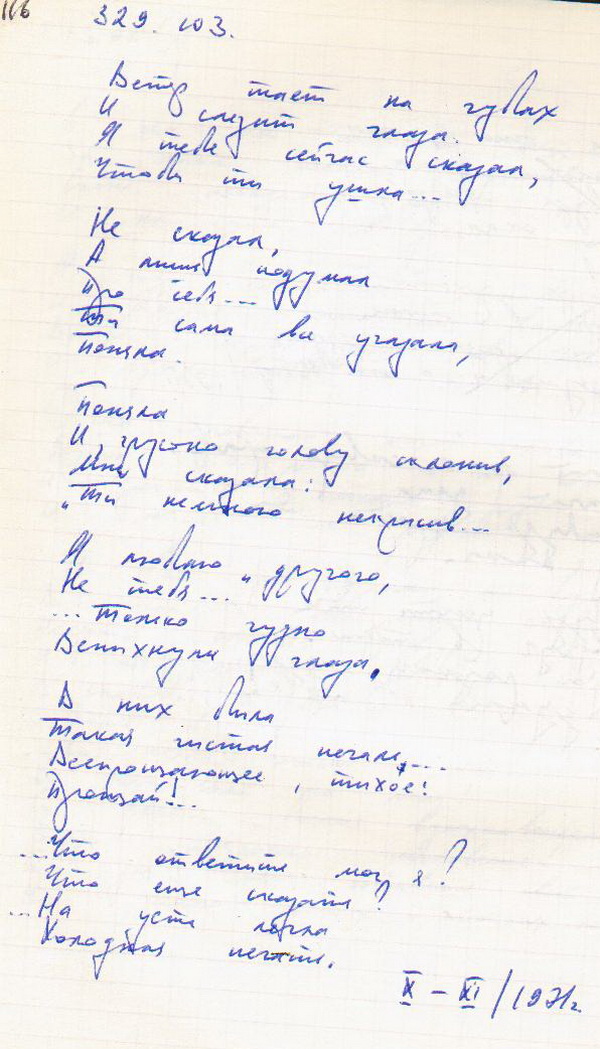 116
329. юз.
Ветер тает на губах
И следит глаза.
Я тебе сейчас сказал,
Чтобы ты ушла...
Не сказал,
А лишь подумал
Про себя...
Ты сама все угадала,
Поняла.
Поняла
И, грустно голову склонив,
Мне сказала:
"Ты немного некрасив...
Я люблю другого,
Не тебя..."
...Только чудно
Вспыхнули глаза,
В них была
Такая чистая печаль,...
Всепрощающее, тихое!
Прощай!...
...Что ответить мог я?
Что еще сказать?
...На уста легла
Холодная печать.
X – XI / 1971г.